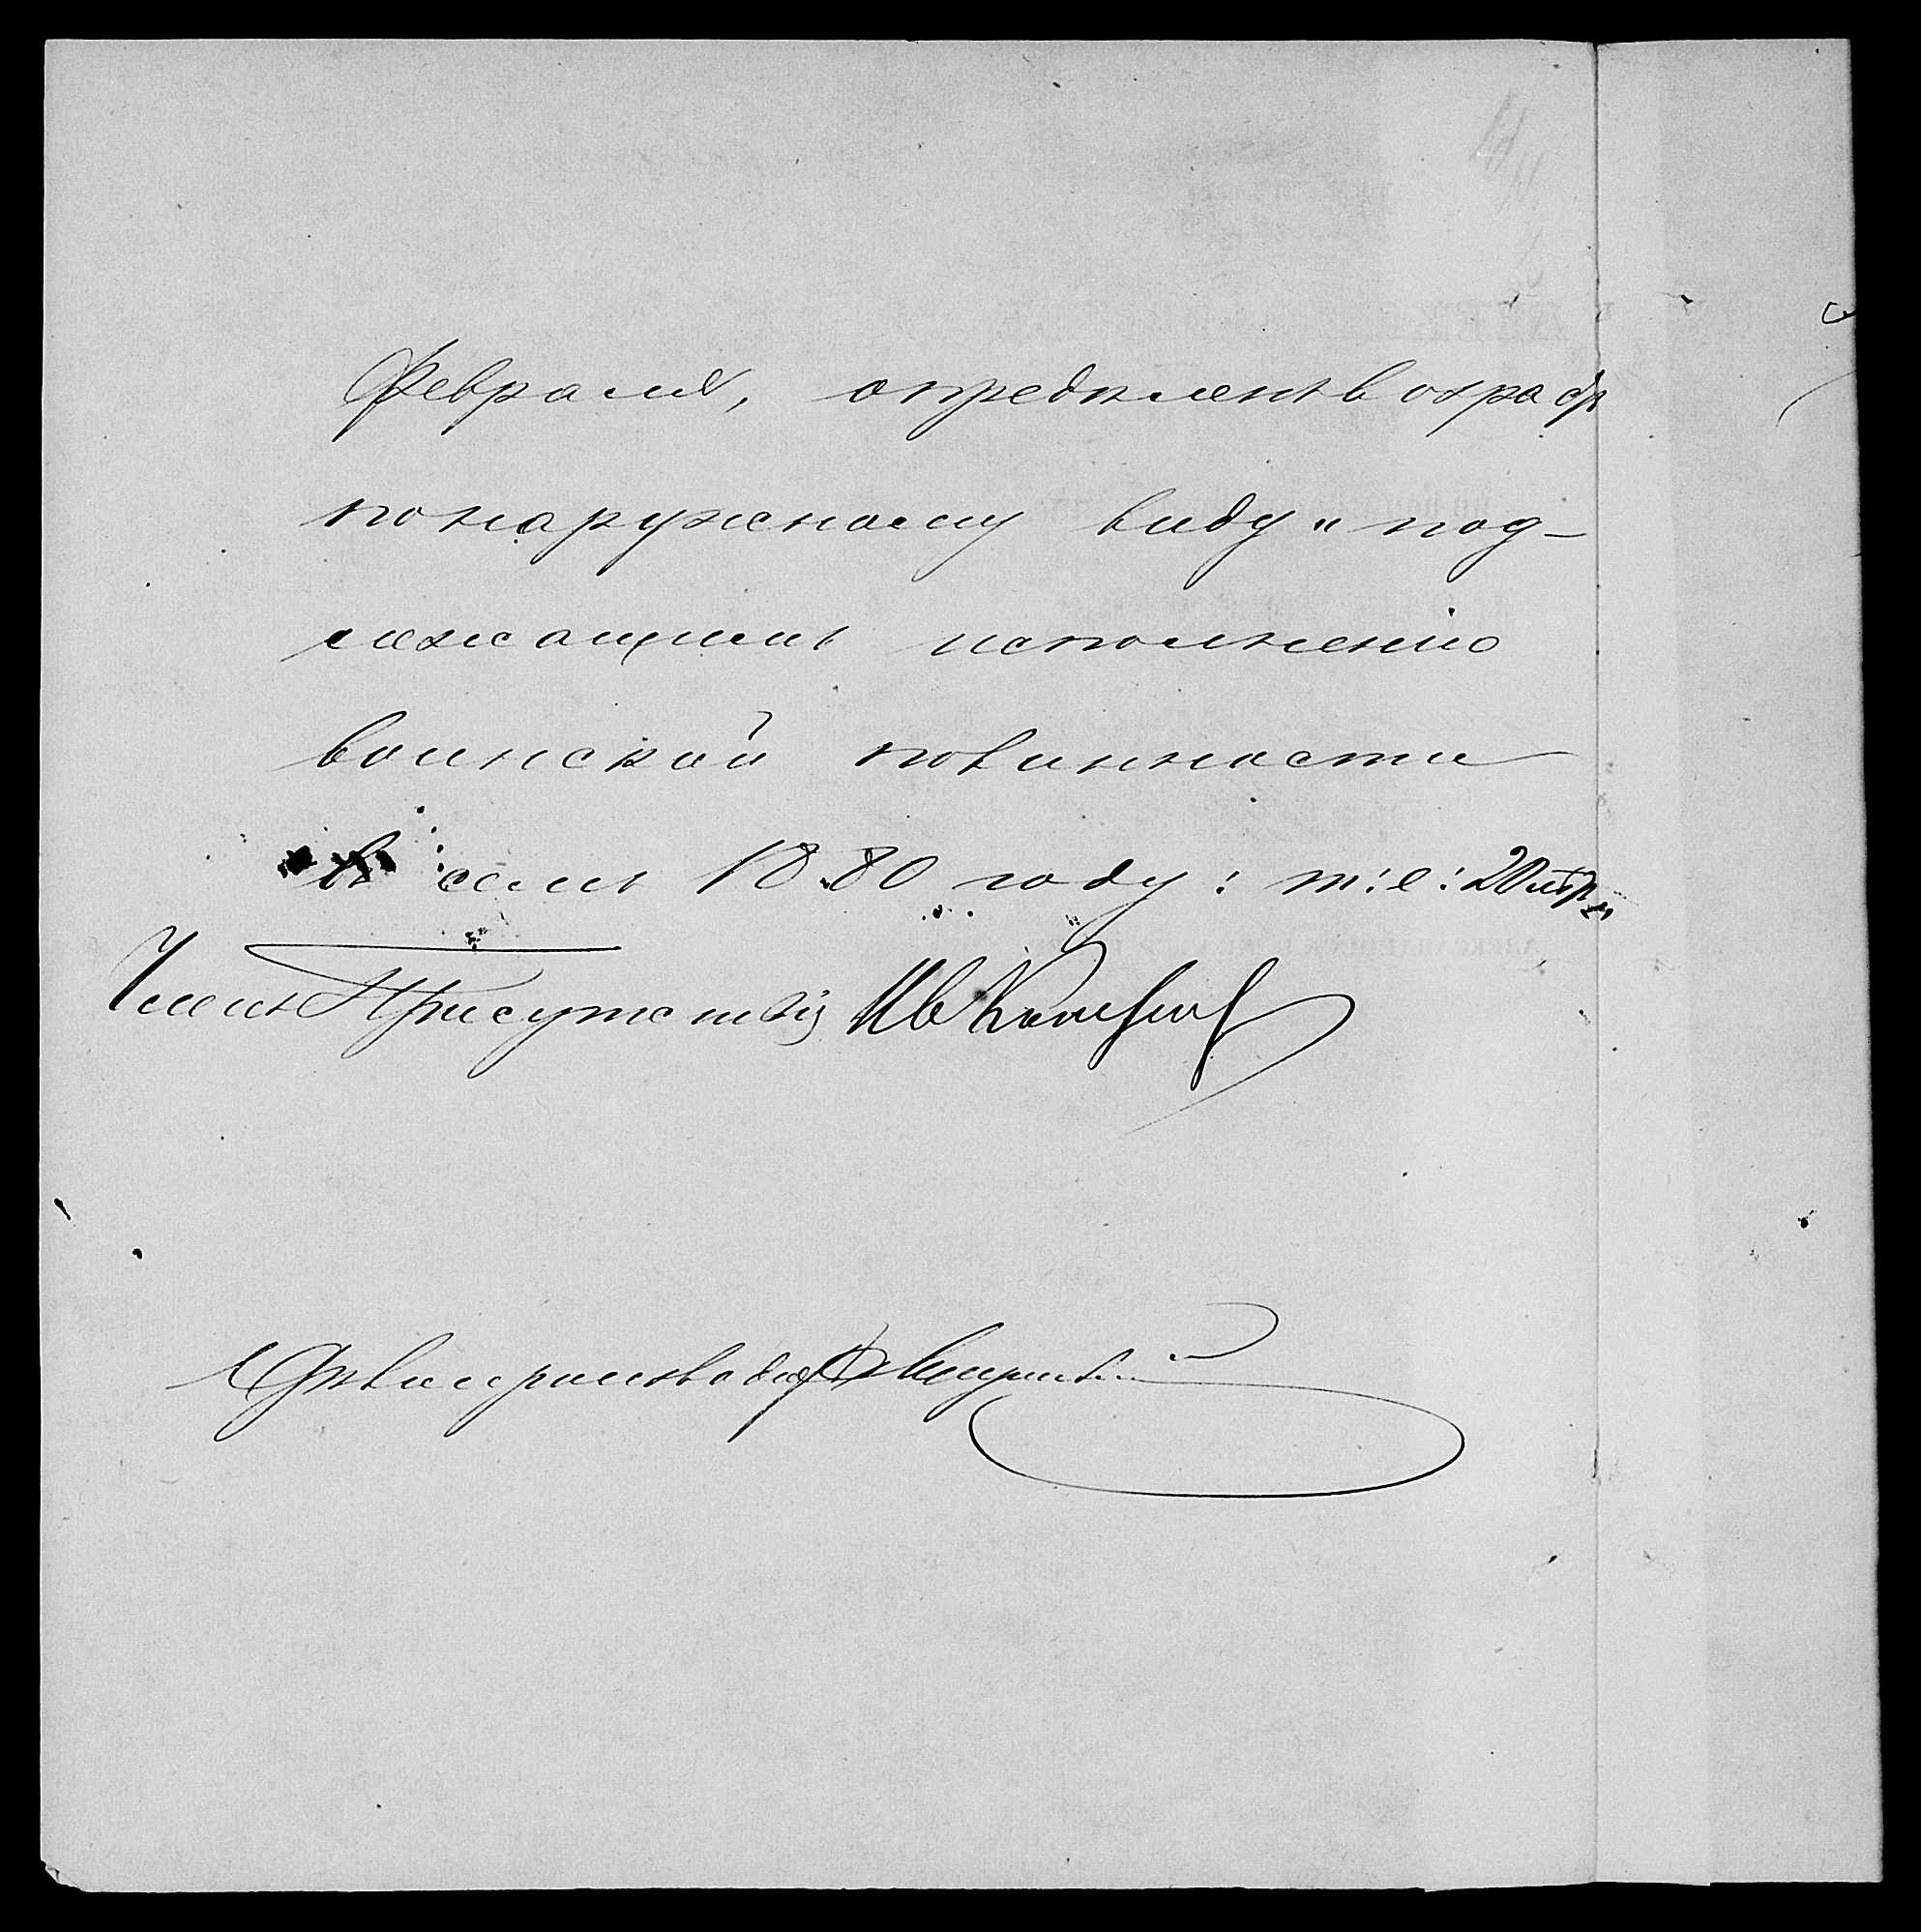 Февраля, определенъ въ
по наружному виду и под-
лежащимъ исполненію
воинской повинности
въ семъ 1880 году: т: е: 20
Членъ Присутствія Ив
Дѣлопроизводи